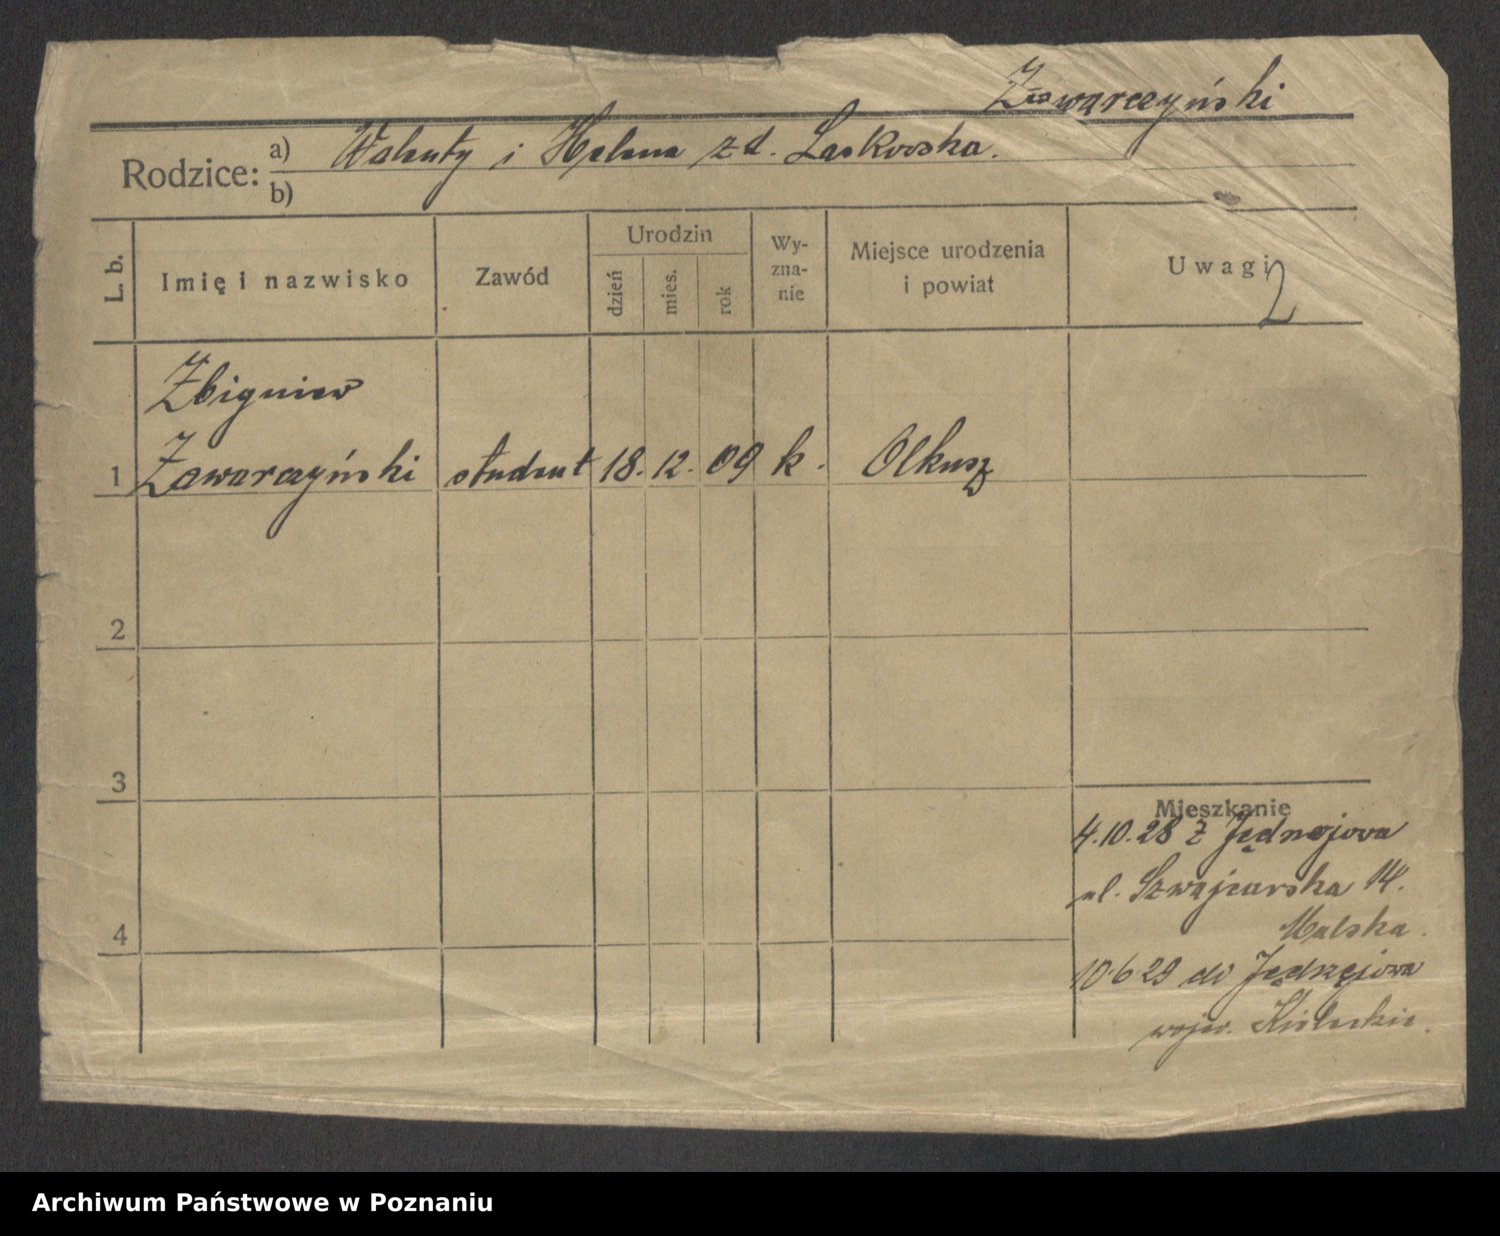 Zawarczyński
Rodzice: a) Walenty i Helena z d. Laskowska.
b)
L. b.
Imię i nazwisko
Zawód
Urodzin
dzień
mies.
rok
Wy-
zna-
nie
Miejsce urodzenia
i powiat
Uwagi
2
Zbigniew
1 Zawarczyński student 18. 12. 09 k. Olkusz
2
3
Mieszkanie
4.10.28 z Jędrzejowa
ul. Szwajcarska 14.
4
10.6 29 do Jędrzejowa
wojew. Kieleckie.
Archiwum Państwowe w Poznaniu